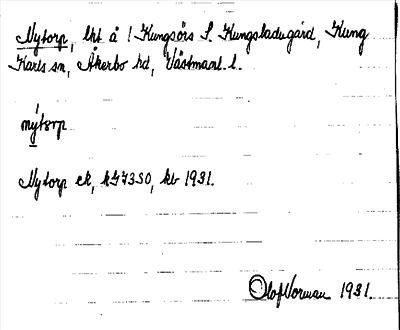 Nytorp, lht å 1 Kungsörs S. Kungsladugård, Kung
Karls sn, Åkerbo hd, Västmanl. l.
nýtorp
Nytorp ek, kG7350, kb 1931.
Olof Norman 1931.